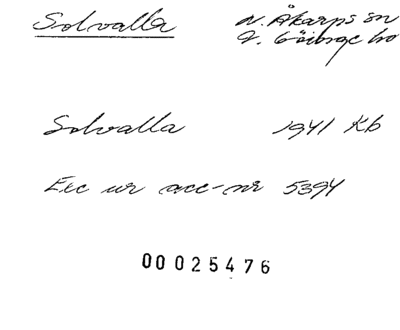 Solvalla N. Åkarps sn
V. Göinge hd
Solvalla 1941 Kb
Exc ur acc-nr 5394
00025476